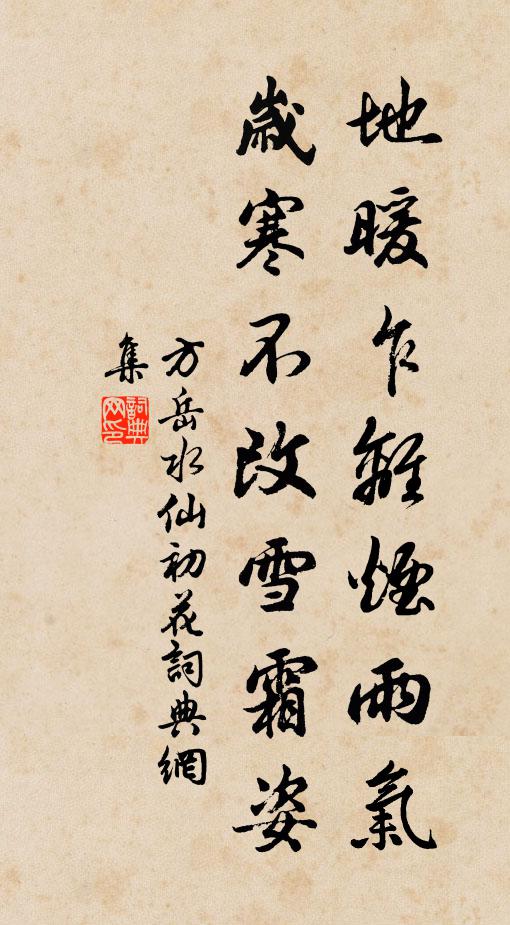 地暖乍離煙雨氣
歲寒不改雪霜姿
方岳水仙初花詞典網
集
詞典網印